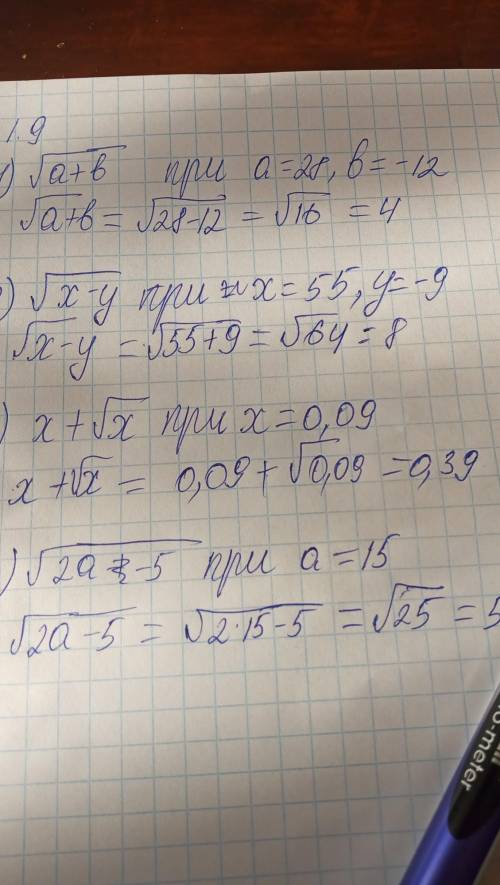 1.9
1) √(a+b) при a=28, b=-12
√(a+b) = √(28-12) = √16 = 4
) √(x-y) при x=55, y=-9
√(x-y) = √(55+9) = √64 = 8
) x+√x при x=0,09
x+√x = 0,09+√0,09 = 0,39
) √(2a-5) при a=15
√(2a-5) = √(2·15-5) = √25 = 5
o-meter